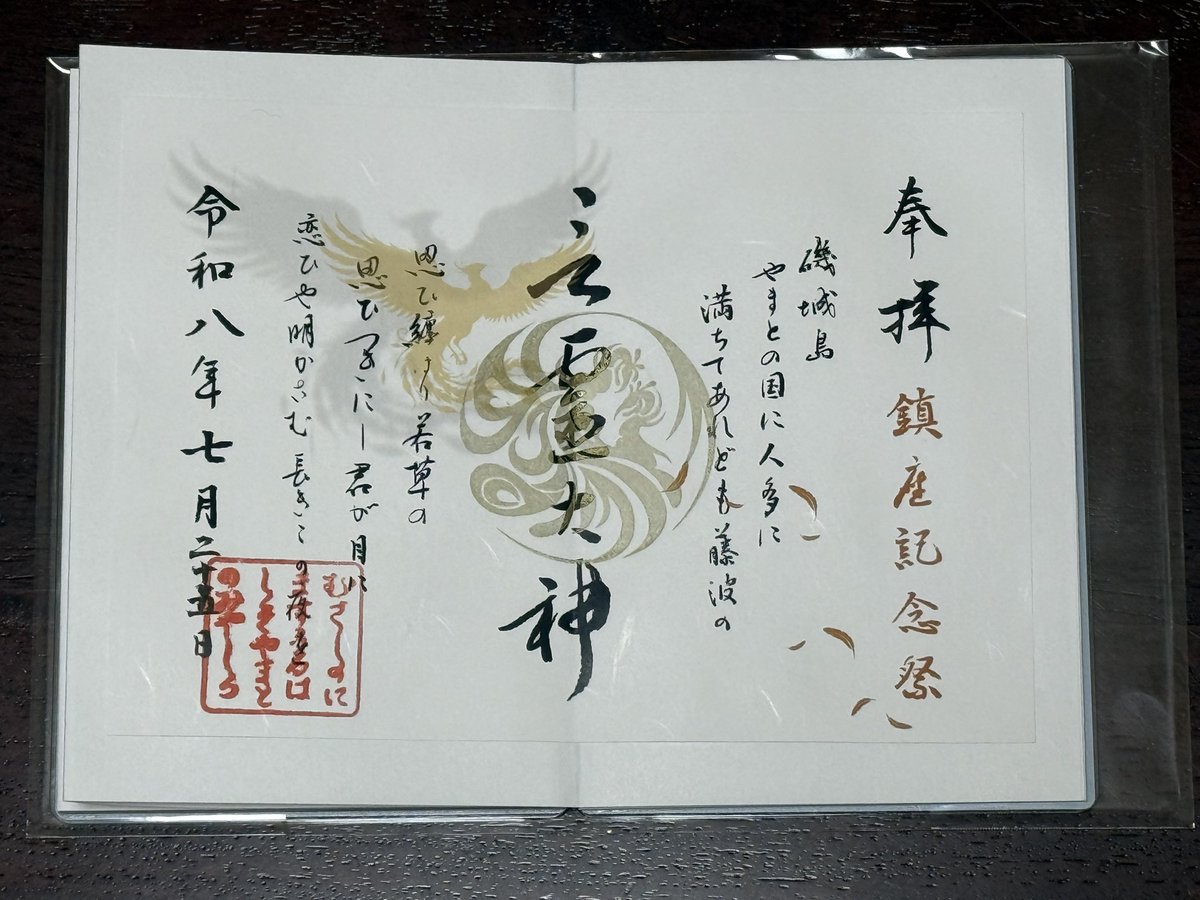 奉拝 鎮座記念祭
磯城島
やまとの国に人多に
満ちてあれども藤波の
言霊大神
思ひ纏はり若草の
思ひつきにし君が目に
恋ひや明かさむ長きこの夜を
令和八年七月二十五日
むさしのに
ますうるは
しきやまと
のみやしろ